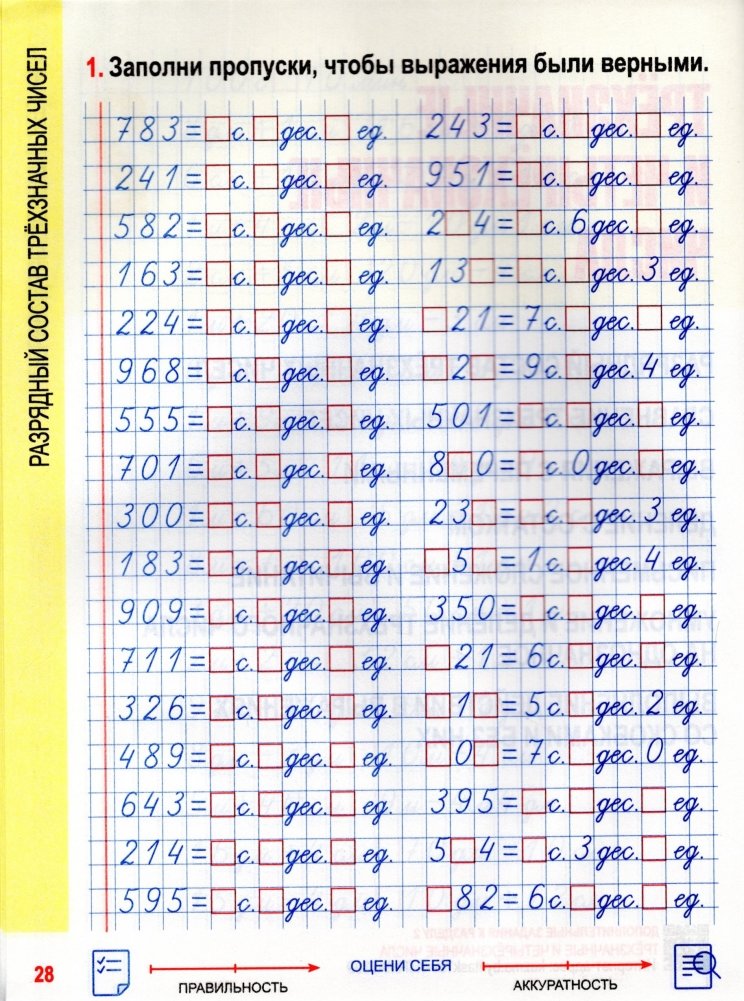 РАЗРЯДНЫЙ СОСТАВ ТРЁХЗНАЧНЫХ ЧИСЕЛ
1. Заполни пропуски, чтобы выражения были верными.
783=□с.□дес.□ ед. 243=□с.□дес.□ ед.
241=□с.□дес.□ ед. 951=□с.□дес.□ ед.
582=□с.□дес.□ ед. 2□4=□с.6дес.□ ед.
163=□с.□дес.□ ед. 13□=□с.□дес.3 ед.
224=□с.□дес.□ ед. □21=7с.□дес.□ ед.
968=□с.□дес.□ ед. □2□=9с.□дес.4 ед.
555=□с.□дес.□ ед. 501=□с.□дес.□ ед.
701=□с.□дес.□ ед. 8□0=□с.0дес.□ ед.
300=□с.□дес.□ ед. 23□=□с.□дес.3 ед.
183=□с.□дес.□ ед. □5□=1с.□дес.4 ед.
909=□с.□дес.□ ед. 350=□с.□дес.□ ед.
711=□с.□дес.□ ед. □21=6с.□дес.□ ед.
326=□с.□дес.□ ед. □1□=5с.□дес.2 ед.
489=□с.□дес.□ ед. □0□=7с.□дес.0 ед.
643=□с.□дес.□ ед. 395=□с.□дес.□ ед.
214=□с.□дес.□ ед. 5□4=□с.3дес.□ ед.
595=□с.□дес.□ ед. □82=6с.□дес.□ ед.
28
ПРАВИЛЬНОСТЬ
ОЦЕНИ СЕБЯ
АККУРАТНОСТЬ